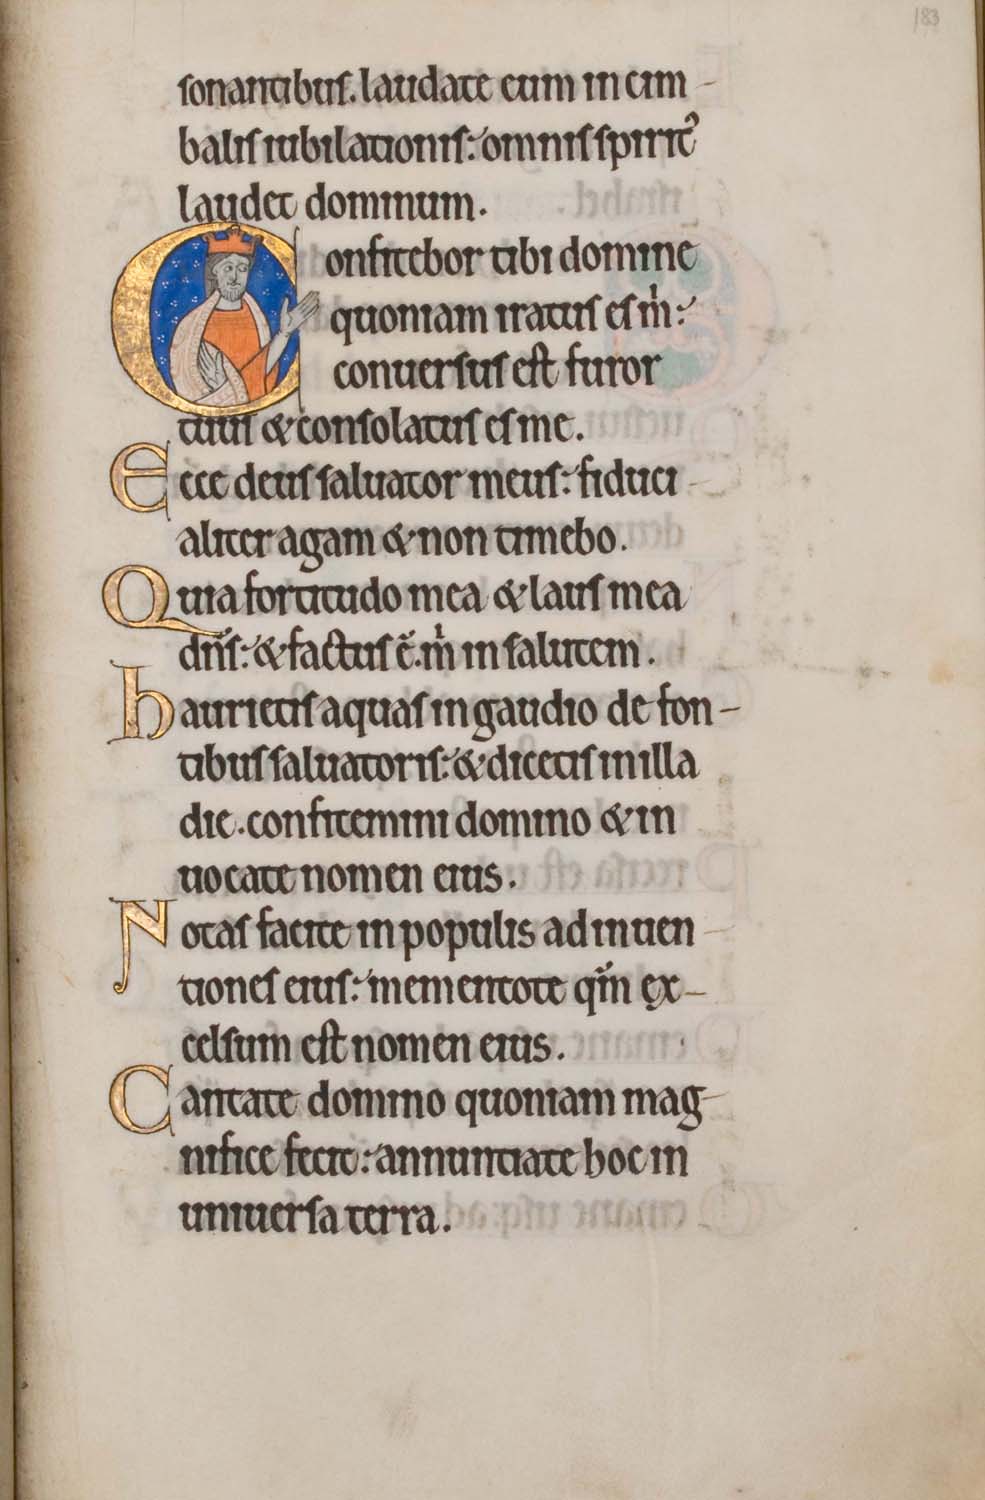 183
sonantibus. laudate eum in cim-
balis iubilationis: omnis spirit᾿
laudet dominum.
Confitebor tibi domine
quoniam iratus es m̊:
conuersus est furor
tuus & consolatus es me.
Ecce deus saluator meus: fiduci
aliter agam & non timebo.
Quia fortitudo mea & laus mea
dn̄s: & factus ē. m̊ in salutem.
Haurietis aquas in gaudio de fon-
tibus saluatoris: & dicetis in illa
die. confitemini domino & in
uocate nomen eius.
Notas facite in populis adinuen
tiones eius: mementote qm̄ ex-
celsum est nomen eius.
Cantate domino quoniam mag-
nifice fecit: annuntiate hoc in
uniuersa terra.